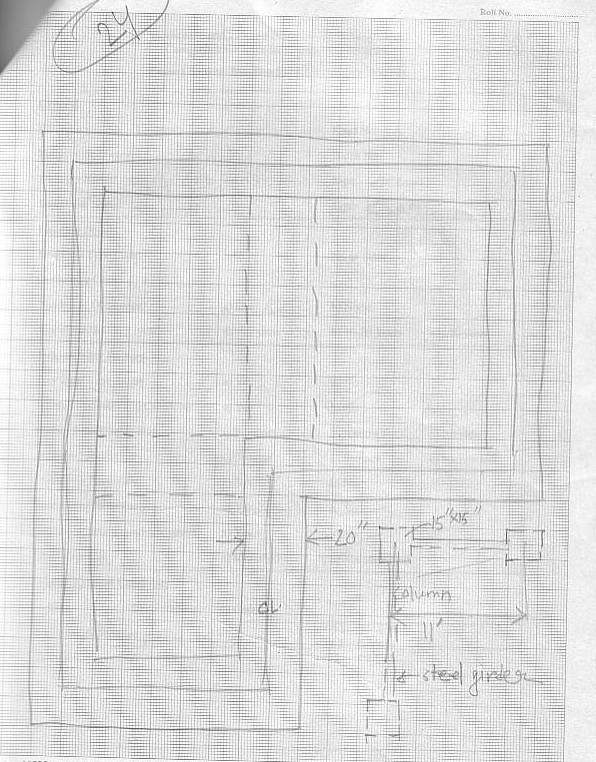 Roll No.
24
20"
15"x15"
column
11'
steel girder